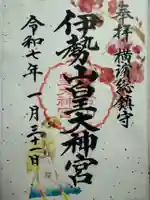 奉拝 横濱総鎮守
伊勢山皇大神宮
令和七年 一月三十一日